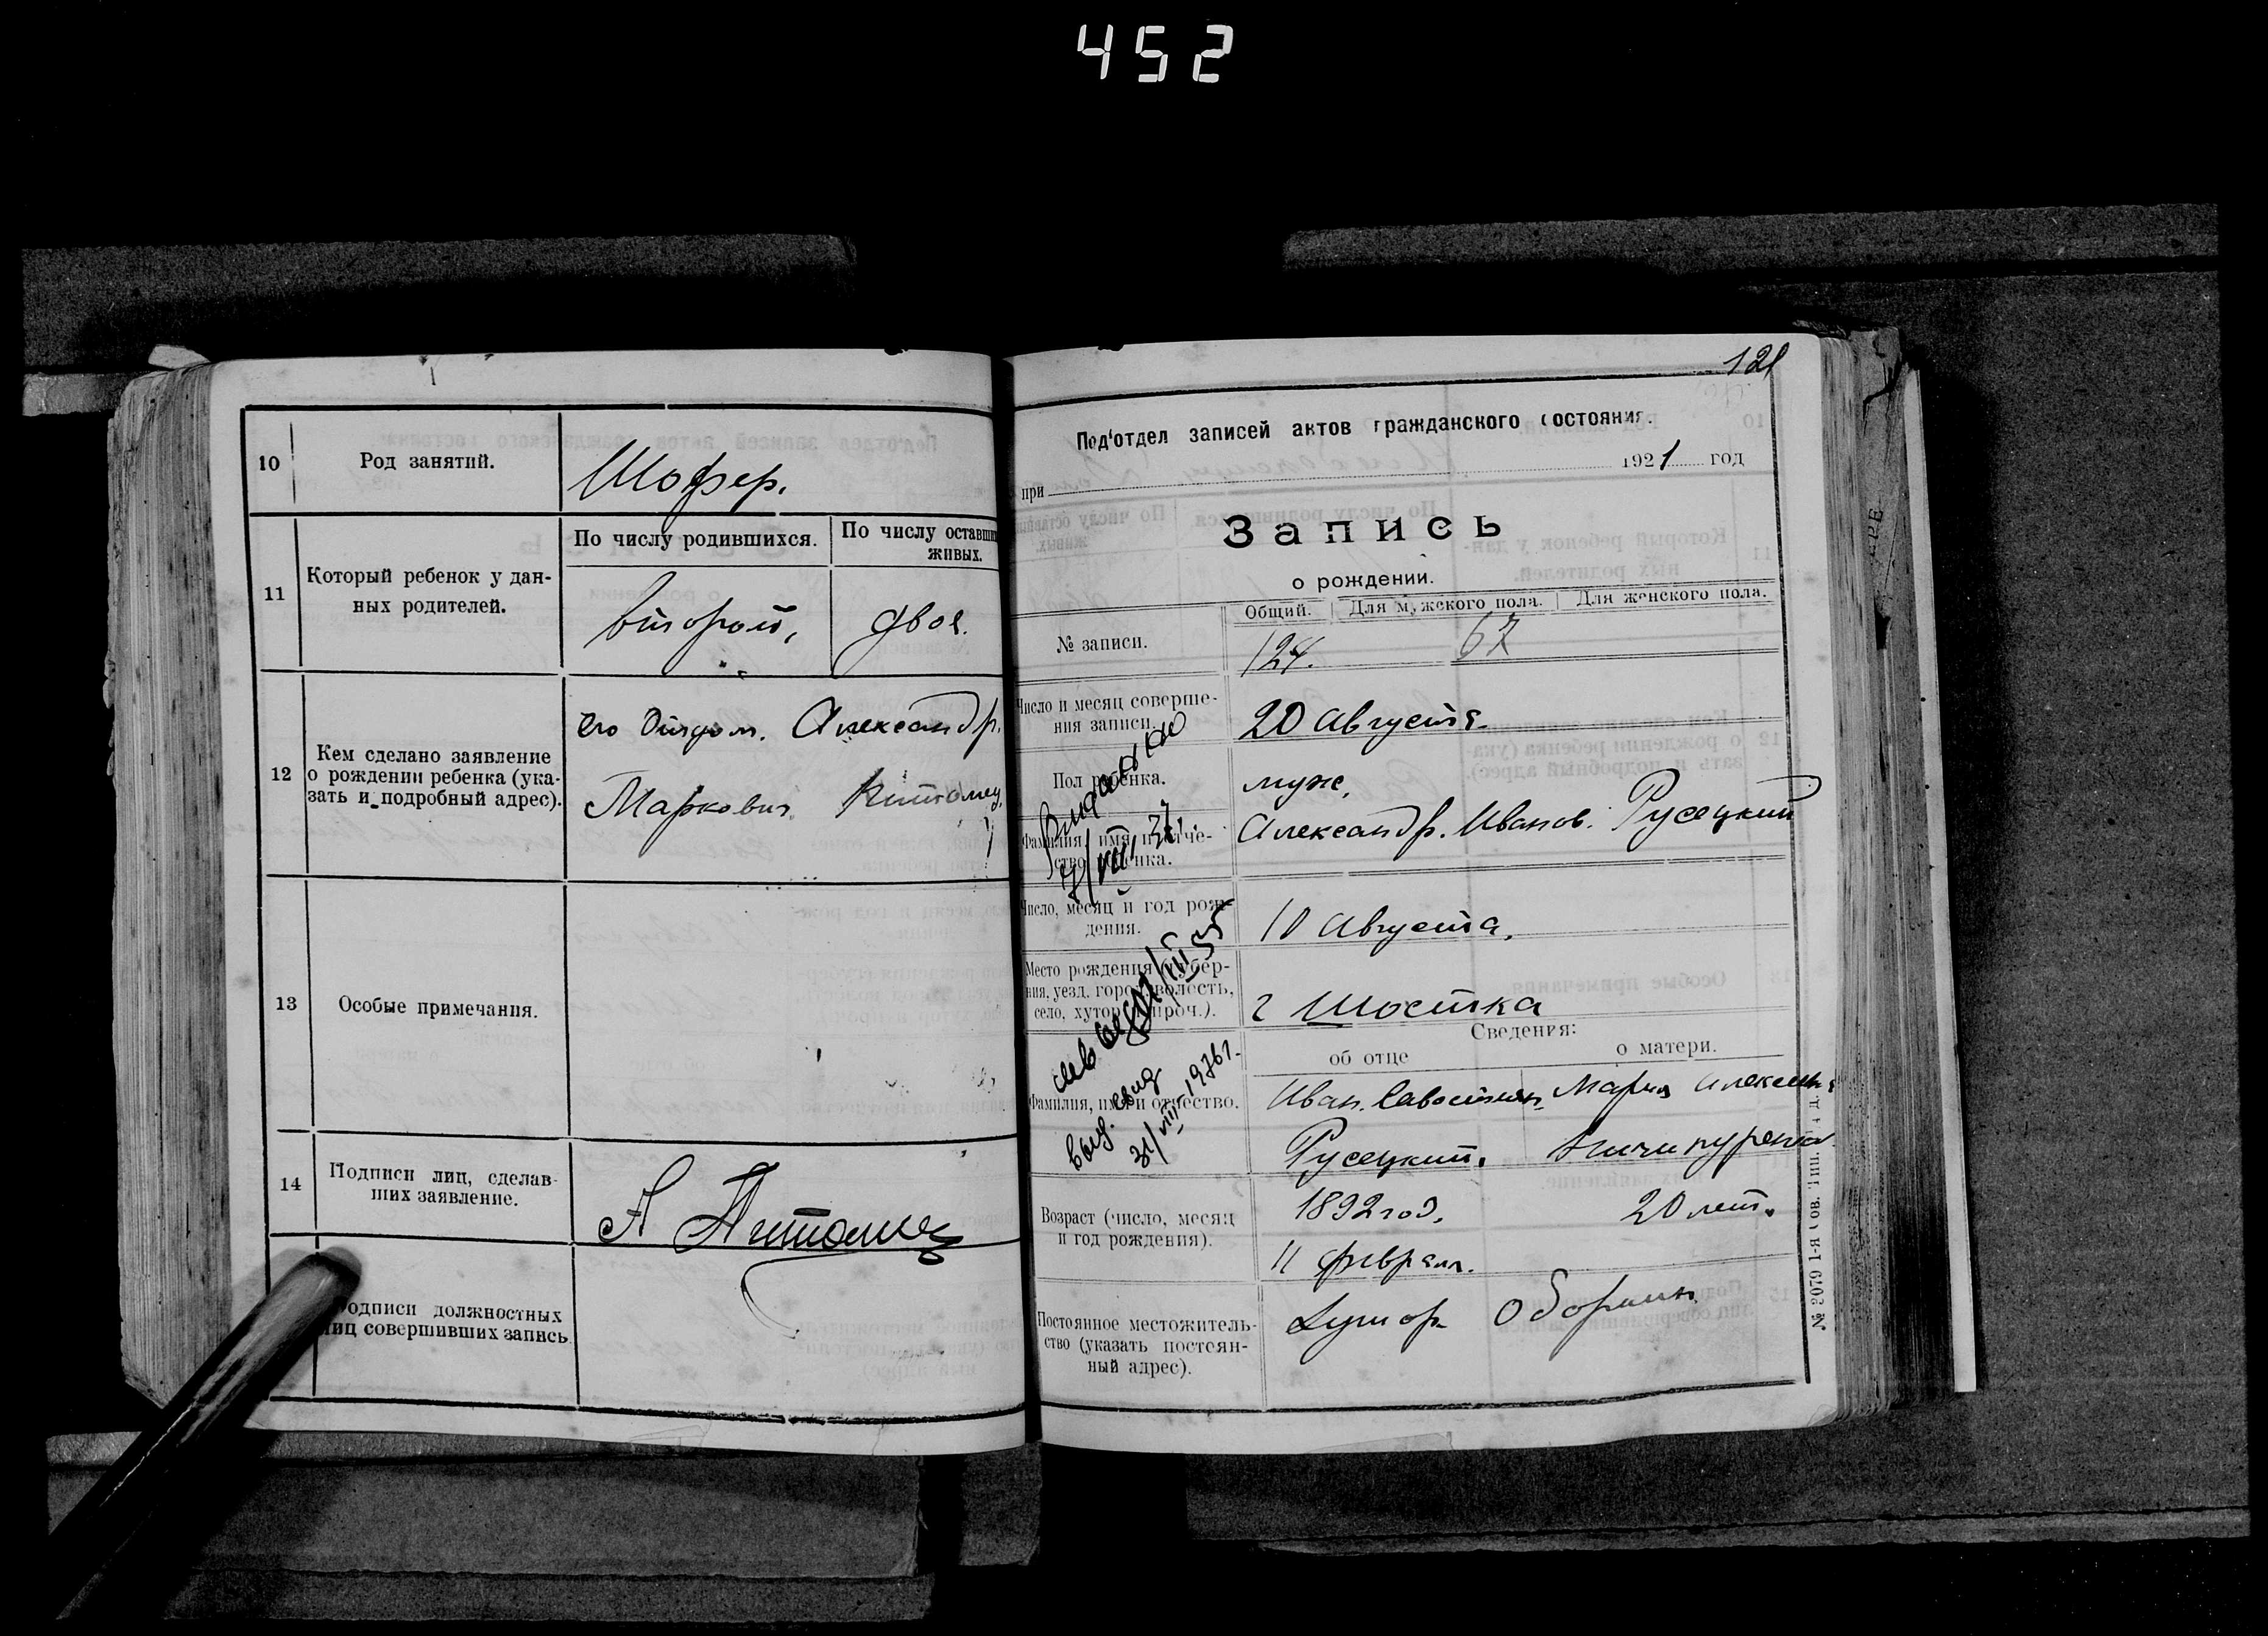 452
10
Род занятий.
Шофер.
11
Который ребенок у дан-
ных родителей.
По числу родившихся.
По числу оставши
живых.
второй,
двое.
12
Кем сделано заявление
о рождении ребенка (ука-
зать и подробный адрес).
его отцом. Александр.
Маркович
13
Особые примечания.
14
Подписи лиц, сделав-
ших заявление.
А
одписи должностных
лиц совершивших запись.
121
Под'отдел записей актов гражданского состояния.
при 1921 год
Запись
о рождении.
Общий. Для мужского пола. Для женского пола.
№ записи.
124. 67
Число и месяц соверше-
ния записи.
20 Августа.
Пол ребенка.
муж.
Фамилия, имя и отче-
ство ребенка.
Александр. Иванов. Русецкий
Число, месяц и год рож-
дения.
10 Августа.
Место рождения (губер-
ния, уезд, город, волость,
село, хутор и проч.).
г Шостка
Сведения:
об отце
о матери.
Фамилия, имя и отчество.
Иван. Савостиян. Мария
Русецкий.
Возраст (число, месяц
и год рождения).
1892 год. 20 лет.
11 феврал.
Постоянное местожитель-
ство (указать постоян-
ный адрес).
Хутор
выд. свид
31/VIII 1976 г.
№ 2079 1-я Сов. Тип.